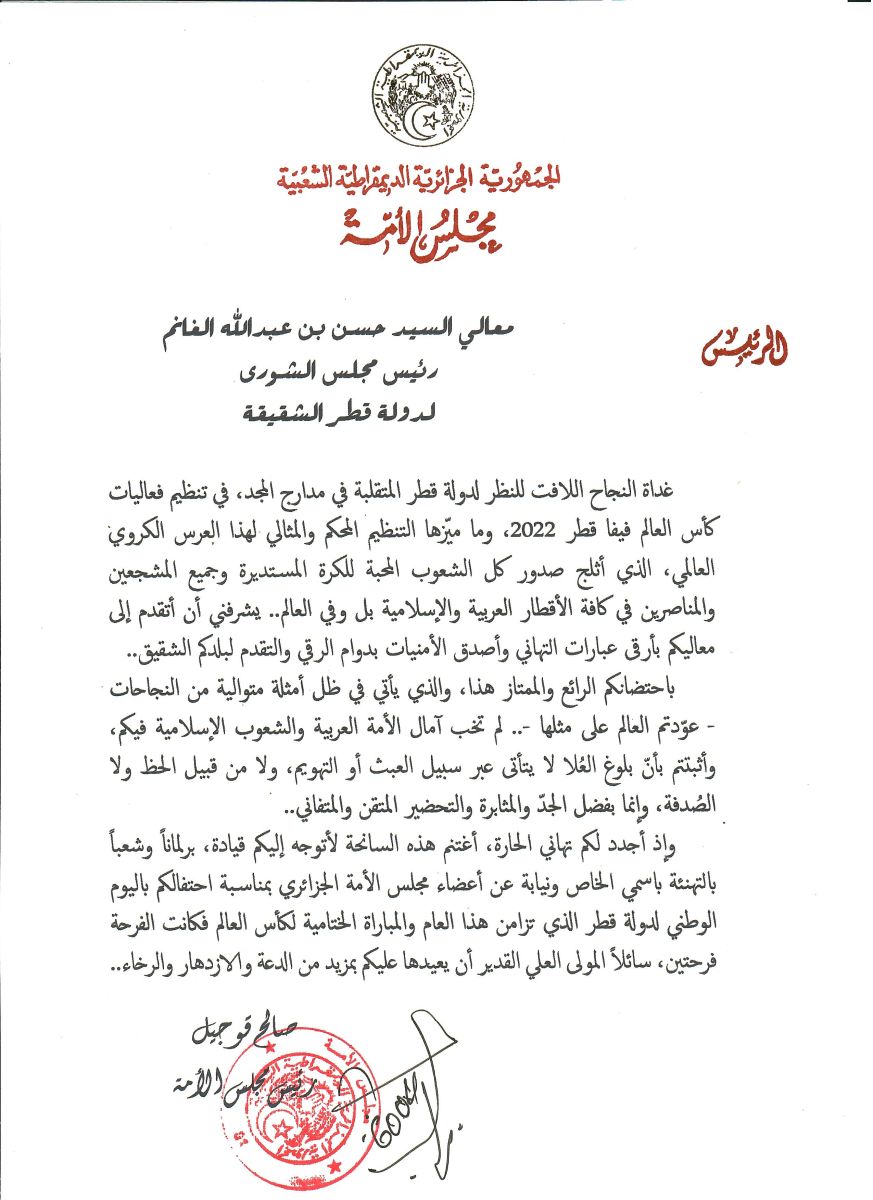 الجمهورية الجزائرية الديمقراطية الشعبية
الجمهُوريّة الجزائريّة الديمقراطيّة الشعْبيّة
مجْلسُ الأمّة
الرئيس
معالي السيد حسن بن عبدالله الغانم
رئيس مجلس الشورى
لدولة قطر الشقيقة
غداة النجاح اللافت للنظر لدولة قطر المتقلبة في مدارج المجد، في تنظيم فعاليات
كأس العالم فيفا قطر 2022، وما ميّزها التنظيم المحكم والمثالي لهذا العرس الكروي
العالمي، الذي أثلج صدور كل الشعوب المحبة للكرة المستديرة وجميع المشجعين
والمناصرين في كافة الأقطار العربية والإسلامية بل وفي العالم.. يشرفني أن أتقدم إلى
معاليكم بأرقى عبارات التهاني وأصدق الأمنيات بدوام الرقي والتقدم لبلدكم الشقيق..
باحتضانكم الرائع والممتاز هذا، والذي يأتي في ظل أمثلة متوالية من النجاحات
- عوّدتم العالم على مثلها -.. لم تخب آمال الأمة العربية والشعوب الإسلامية فيكم،
وأثبتتم بأنّ بلوغ العُلا لا يتأتى عبر سبيل العبث أو التهويم، ولا من قبيل الحظ ولا
الصُدفة، وإنما بفضل الجدّ والمثابرة والتحضير المتقن والمتفاني..
وإذ أجدد لكم تهاني الحارة، أغتنم هذه السانحة لأتوجه إليكم قيادة، برلماناً وشعباً
بالتهنئة باسمي الخاص ونيابة عن أعضاء مجلس الأمة الجزائري بمناسبة احتفالكم باليوم
الوطني لدولة قطر الذي تزامن هذا العام والمباراة الختامية لكأس العالم فكانت الفرحة
فرحتين، سائلاً المولى العلي القدير أن يعيدها عليكم بمزيد من الدعة والازدهار والرخاء..
صالح قوجيل
رئيس مجلس الأمة